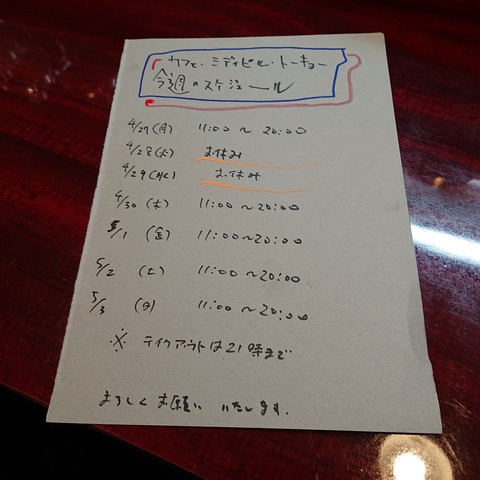 カフェ・ミディピル・トーキョー
今週のスケジュール
4/27(月) 11:00〜20:00
4/28(火) お休み
4/29(水) お休み
4/30(木) 11:00〜20:00
5/1(金) 11:00〜20:00
5/2(土) 11:00〜20:00
5/3(日) 11:00〜20:00
※ テイクアウトは21時まで
よろしくお願いいたします。